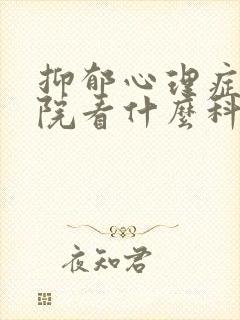 抑郁心理症
院看什麽科
夜知君